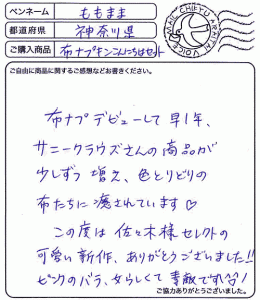 ペンネーム ももまま
都道府県 神奈川県
ご購入商品 布ナプキンこんにちはセット
MAIL CHIEKU ARAITAI VOICE
ご自由に商品に関するご感想などお書きください。
布ナプデビューして早1年、
サニークラウズさんの商品が
少しずつ増え、色とりどりの
布たちに癒されています♡
この度は佐々木様セレクトの
可愛い新作、ありがとうございました!!
ピンクのバラ、女らしくて素敵ですね!
ご協力ありがとうございました。